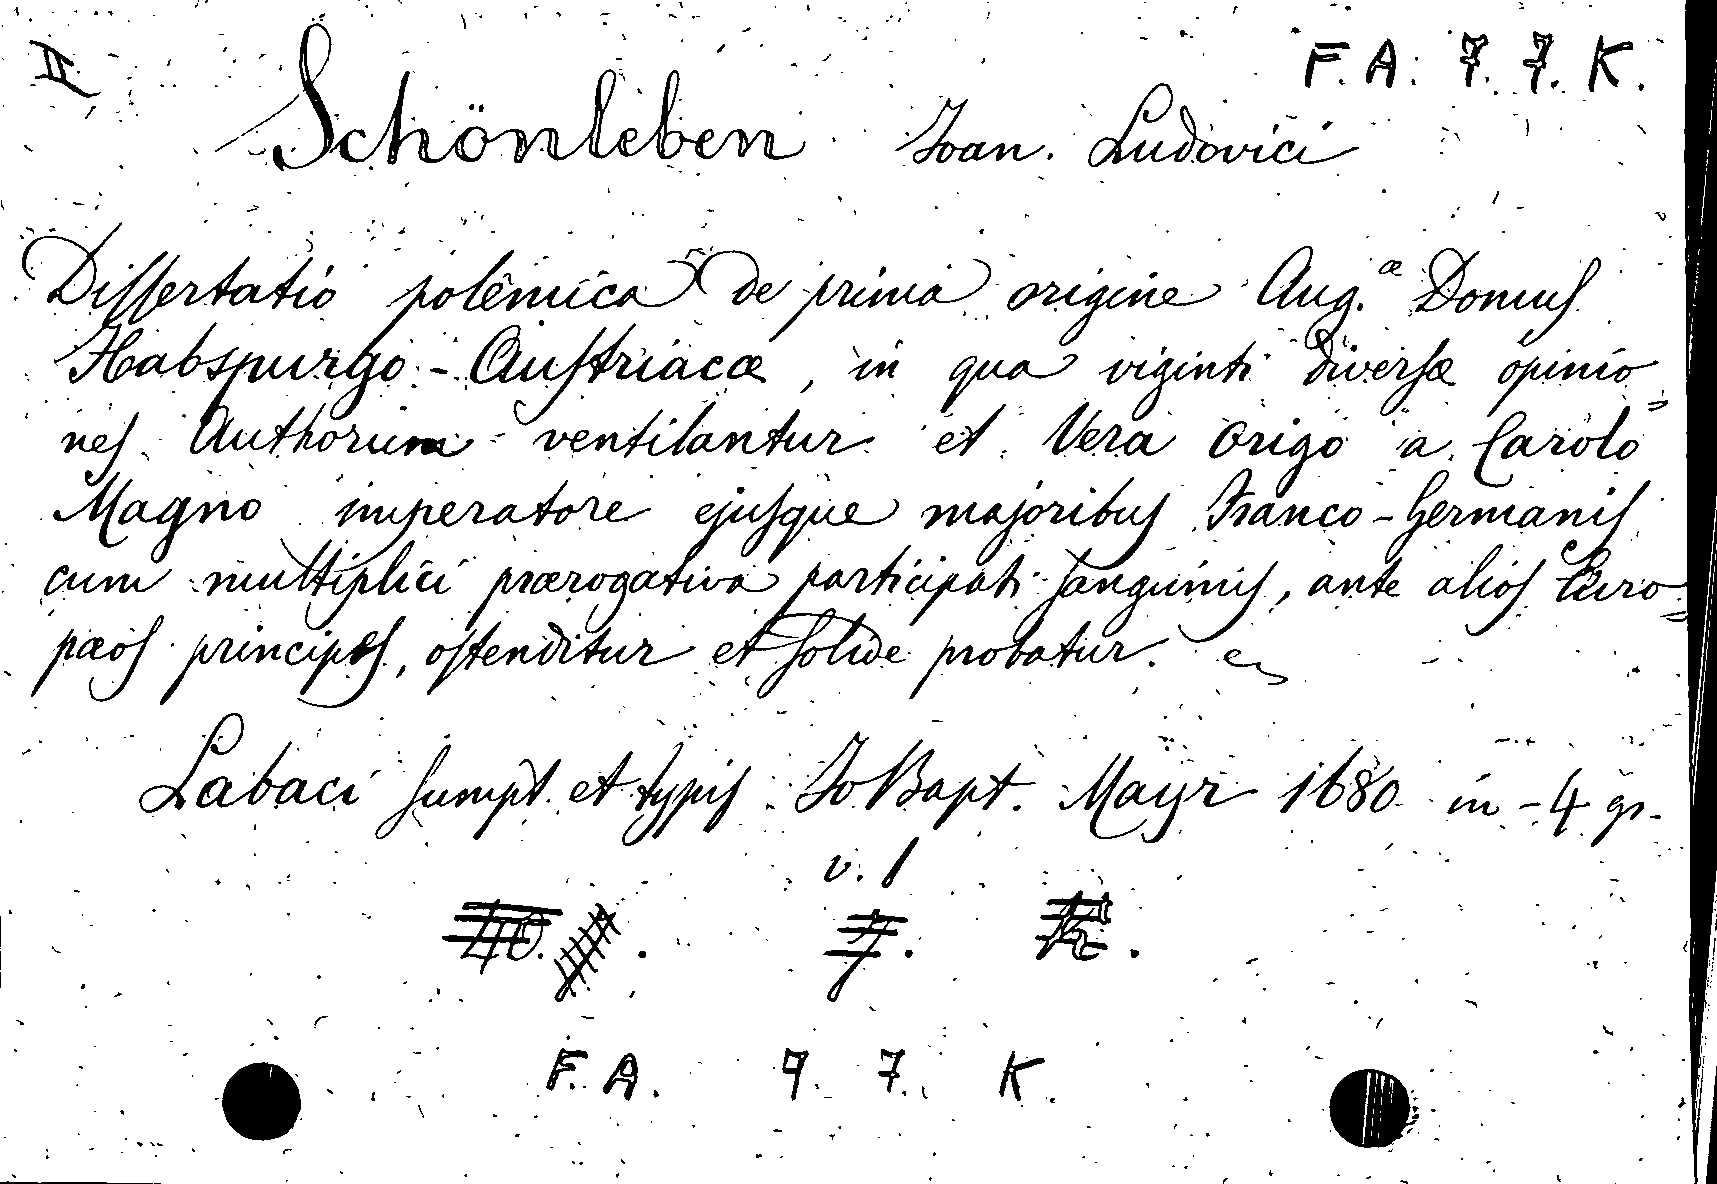 II
F. A. 7. 7. K.
Schönleben Joan. Ludovici
Diſſertatio polêmica de prima origine Aug.æ Domus
Habspurgo-Auſtriacæ, in qua viginti diverſæ opinio=
nes Authorum ventilantur et Vera Origo a Carolo
Magno imperatore ejuſque majoribus Franco-Germanis
cum multiplici prærogativa participati ſanguinis, ante alios Euro=
pæos principes, oſtenditur et ſolide probatur.
Labaci ſumpt. et typis Jo Bapt. Mayr 1680 in-4 gr.
v. 1
40. . 7. K.
F. A. 7. 7. K.